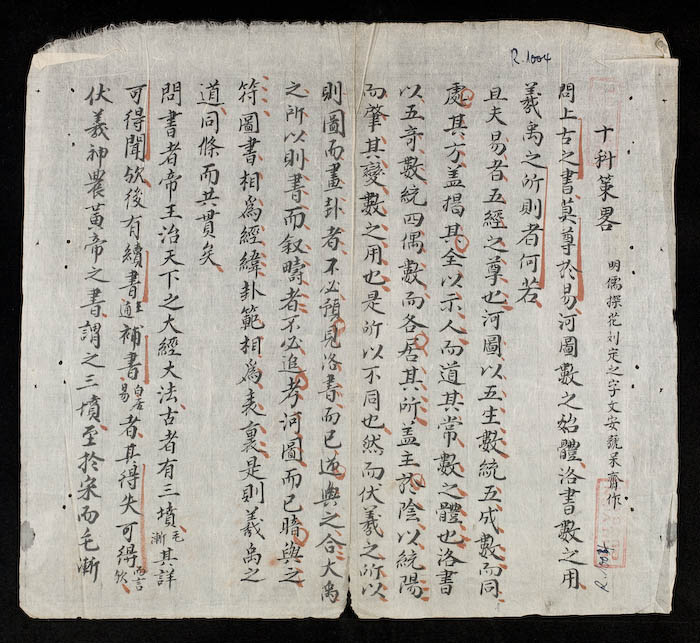 R.1004
十科策畧 明儒探花刘定之字文安號呆齋作
問上古之書莫尊於易河圖數之始體洛書數之用
羲禹之所則者何若
且夫易者五經之尊也河圖以五生數統五成數而同
處其方盖揭其全以示人而道其常數之體也洛書
以五奇數統四偶數而各居其所盖主於陰以統陽
而肇其變數之用也是所以不同也然而伏羲之所以
則圖而畫卦者不必預見洛書而已道與之合大禹
之所以則書而叙疇者不必追考河圖而已暗與之
符圖書相爲經緯卦範相爲表裏是則羲禹之
道同條而共貫矣
問書者帝王治天下之大經大法古者有三墳毛漸其詳
可得聞欤後有續書王通補書白居易者其得失可得而言欤
伏羲神農黃帝之書謂之三墳至於宋而毛漸